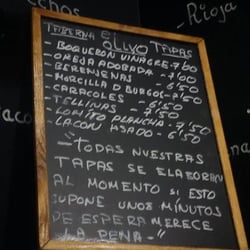 echos
- Rioja
TABERNA el OLIVO TAPAS
- BOQUERON VINAGRE - 7'00
- OREJA ADOBADA - 7'00
- BERENJENAS - 6'50
- MORCILLA D BURGOS - 7'50
- CARACOLES - 6'50
- TELLINAS - 7'50
- LOMITO PLANCHA - 7'50
- LACON ASADO - 6'50
- "TODAS NUESTRAS
TAPAS SE ELABORAN
AL MOMENTO SI ESTO
SUPONE UNOS MINUTOS
DE ESPERA MERECE
LA PENA - "